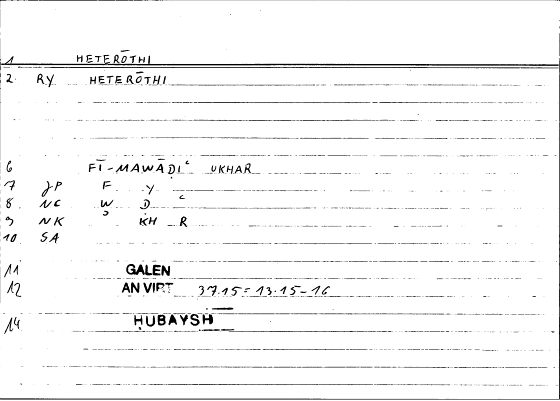 1 HETERŌTHI
2 RY HETERŌTHI
6 FĪ-MAWĀḌIʿ UKHAR
7 JP F Y
8 NC W Ḍ ʿ
9 NK ʾ KH R
10 SA
11 GALEN
12 AN VIRT 37.15 = 13.15-16
14 ḤUBAYSH